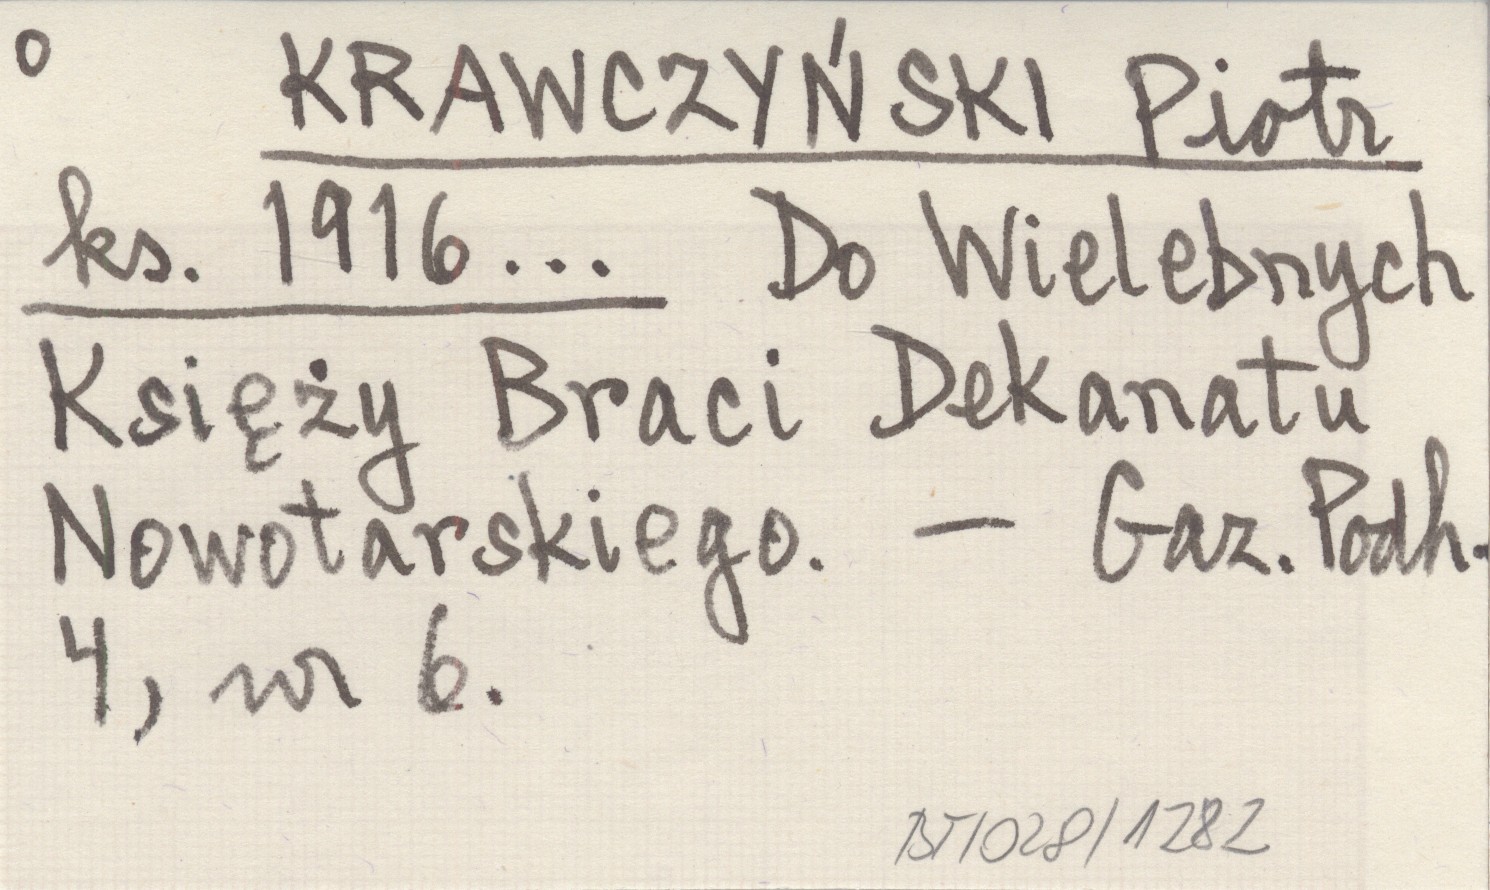 o KRAWCZYŃSKI Piotr
ks. 1916... Do Wielebnych
Księży Braci Dekanatu
Nowotarskiego. — Gaz. Podh.
4, nr 6.
BT/028/1282